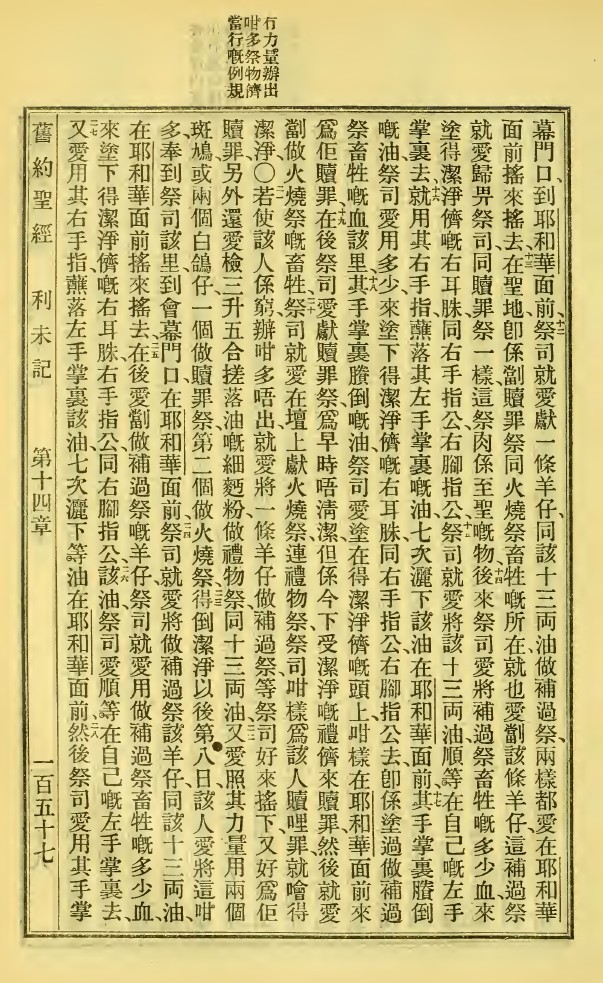 冇力量辦出
咁多祭物儕
當行嘅例規
幕門口、到耶和華面前、十二祭司就愛獻一條羊仔、同該十三両油做補過祭、兩樣都愛在耶和華
面前搖來搖去、十三在聖地卽係劏贖罪祭同火燒祭畜牲嘅所在、就也愛劏該條羊仔、這補過祭
就愛歸畀祭司、同贖罪祭一樣、這祭肉係至聖嘅物、十四後來祭司愛將補過祭畜牲嘅多少血、來
塗得潔淨儕嘅右耳腍、同右手指公、右腳指公、十五祭司就愛將該十三両油順等在自己嘅左手
掌裏去、十六就用其右手指蘸落其左手掌裏嘅油、七次灑下該油在耶和華面前、十七其手掌裏賸倒
嘅油、祭司愛用多少、來塗下得潔淨儕嘅右耳腍、同右手指公、右腳指公去、卽係塗過做補過
祭畜牲嘅血該里、十八其手掌裏賸倒嘅油、祭司愛塗在得潔淨儕嘅頭上、咁樣在耶和華面前來
爲佢贖罪、十九在後祭司愛獻贖罪祭、爲早時唔清潔、但係今下受潔淨嘅禮儕來贖罪、然後就愛
劏做火燒祭嘅畜牲、二十祭司就愛在壇上獻火燒祭連禮物祭、祭司咁樣爲該人贖哩罪、就噲得
潔淨〇二一若使該人係窮、辦咁多唔出、就愛將一條羊仔做補過祭、等祭司好來搖下、又好爲佢
贖罪、另外還愛檢三升五合搓落油嘅細麪粉做禮物祭、同十三両油、二二又愛照其力量用兩個
斑鳩、或兩個白鴿仔、一個做贖罪祭、第二個做火燒祭、二三得倒潔淨以後第八日、該人愛將這咁
多奉到祭司該里、到會幕門口、在耶和華面前、二四祭司就愛將做補過祭該羊仔、同該十三両油、
在耶和華面前搖來搖去、二五在後愛劏做補過祭嘅羊仔、祭司就愛用做補過祭畜牲嘅多少血、
來塗下得潔淨儕嘅右耳腍、右手指公、同右腳指公、二六該油祭司愛順等在自己嘅左手掌裏去、
二七又愛用其右手指、蘸落左手掌裏該油、七次灑下等油在耶和華面前、二八然後祭司愛用其手掌
舊約聖經 利未記 第十四章 一百五十七